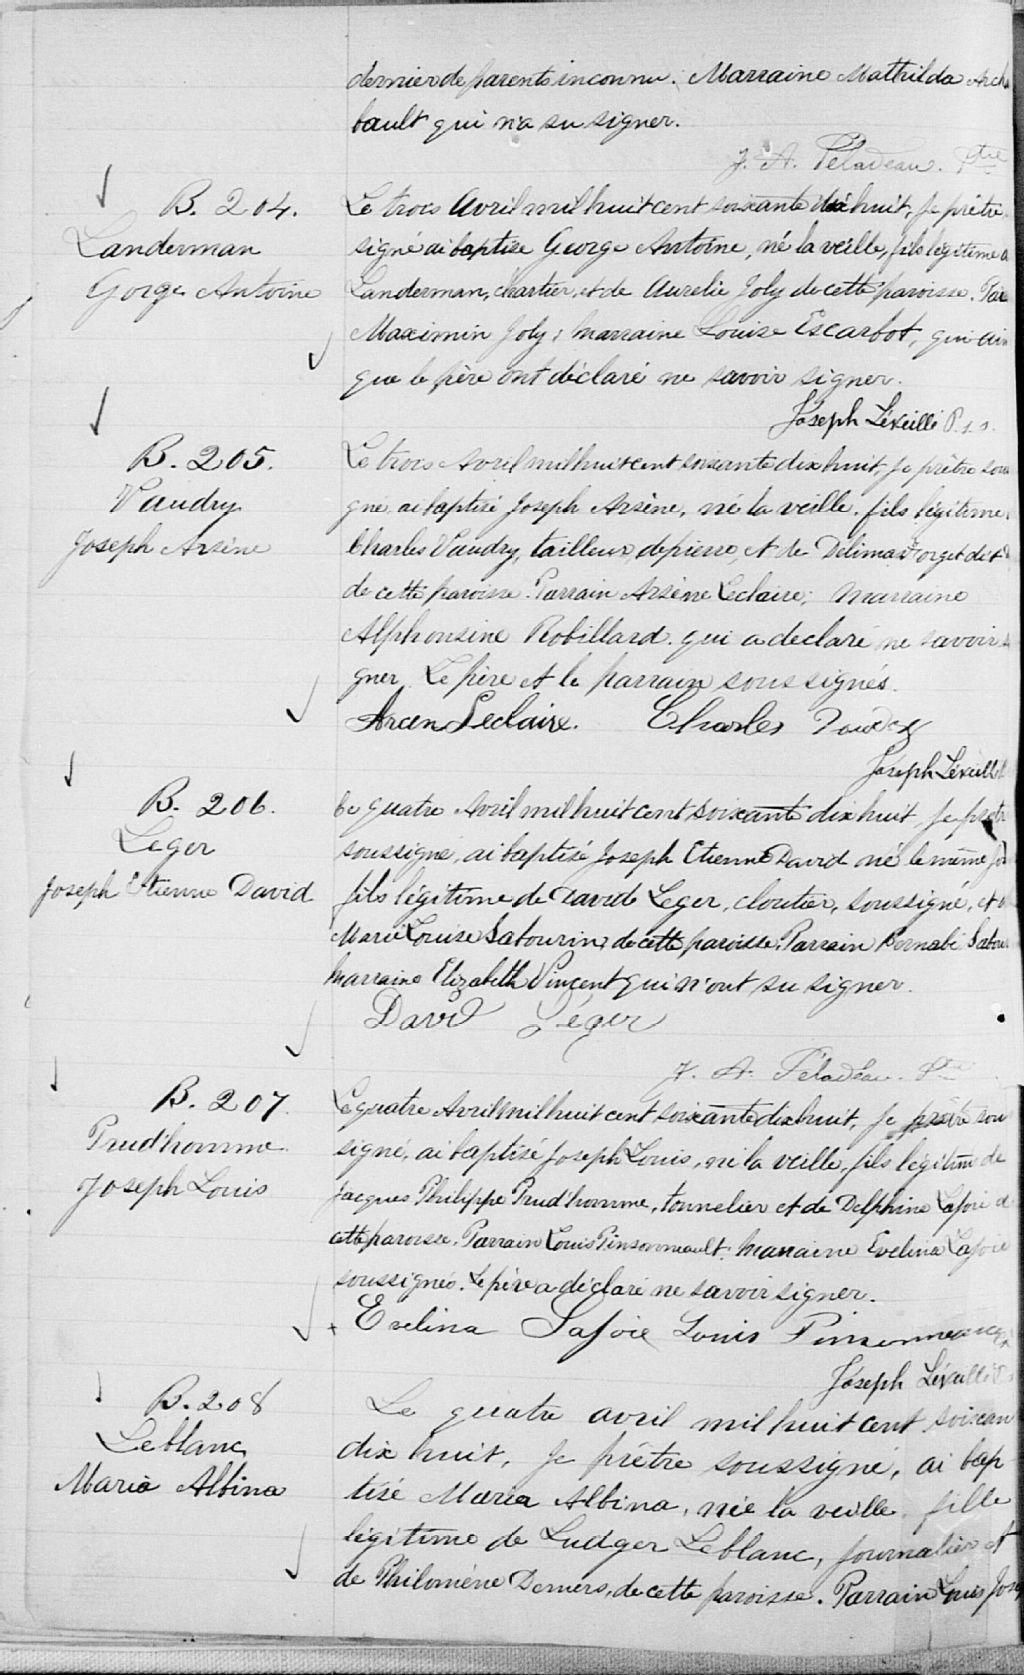 dernier de parents inconnu. Marraine Mathilda Archa
bault qui n'a su signer.
J. A. Péladeau. Ptre
B. 204.
Landerman
Gorge Antoine
Le trois Avril mil huit cent soixante dix huit, je prêtre
signé ai baptisé George Antoine, né la veille, fils légitime
Landerman, chartier, et de Aurelie Joly de cette paroisse. Par
Maximin Joly; marraine Louise Escarbot, qui ain
que le père ont déclaré ne savoir signer.
Joseph Léveillé P.s.s.
B. 205.
Vaudry
Joseph Arsène
Le trois Avril mil huit cent soixante dix huit, je prêtre sous
gné, ai baptisé Joseph Arsène, né la veille, fils légitime
Charles Vaudry, tailleur de pierre, et de Delima Forget dit
de cette paroisse. Parrain Arsène Leclaire; marraine
Alphonsine Robillard qui a declaré ne savoir
gner. Le père et le parrain soussignés.
Arcen Leclaire. Charles Voudry
Joseph Léveillé
B. 206.
Leger
Joseph Etienne David
Le quatre Avril mil huit cent soixante dix huit, je prêtre
soussigné, ai baptisé Joseph Etienne David né le même jo
fils légitime de David Leger, cloutier, soussigné, et
Marie Louise Sabourin, de cette paroisse. Parrain Bernabé Sabou
marraine Elizabeth Vincent qui n'ont su signer.
David Léger
J. A. Péladeau. Ptre
B. 207.
Prud'homme
Joseph Louis
Le quatre Avril mil huit cent soixante dix huit, je prêtre sou
signé, ai baptisé Joseph Louis, né la veille, fils légitime de
Jacques Philippe Prud'homme, tonnelier et de Delphine Lajoie d
cette paroisse. Parrain Louis Pinsonneault; marraine Evelina Lajoie
soussignés. Le père a déclaré ne savoir signer.
Evelina Lajoie Louis Pinsonneault
Joseph Léveillé
B. 208
Leblanc
Maria Albina
Le quatre avril mil huit cent soixan
dix huit, je prêtre soussigné, ai bap
tisé Maria Albina, née la veille, fille
légitime de Ludger Leblanc, journalier et
de Philomène Demers, de cette paroisse. Parrain Louis Jos